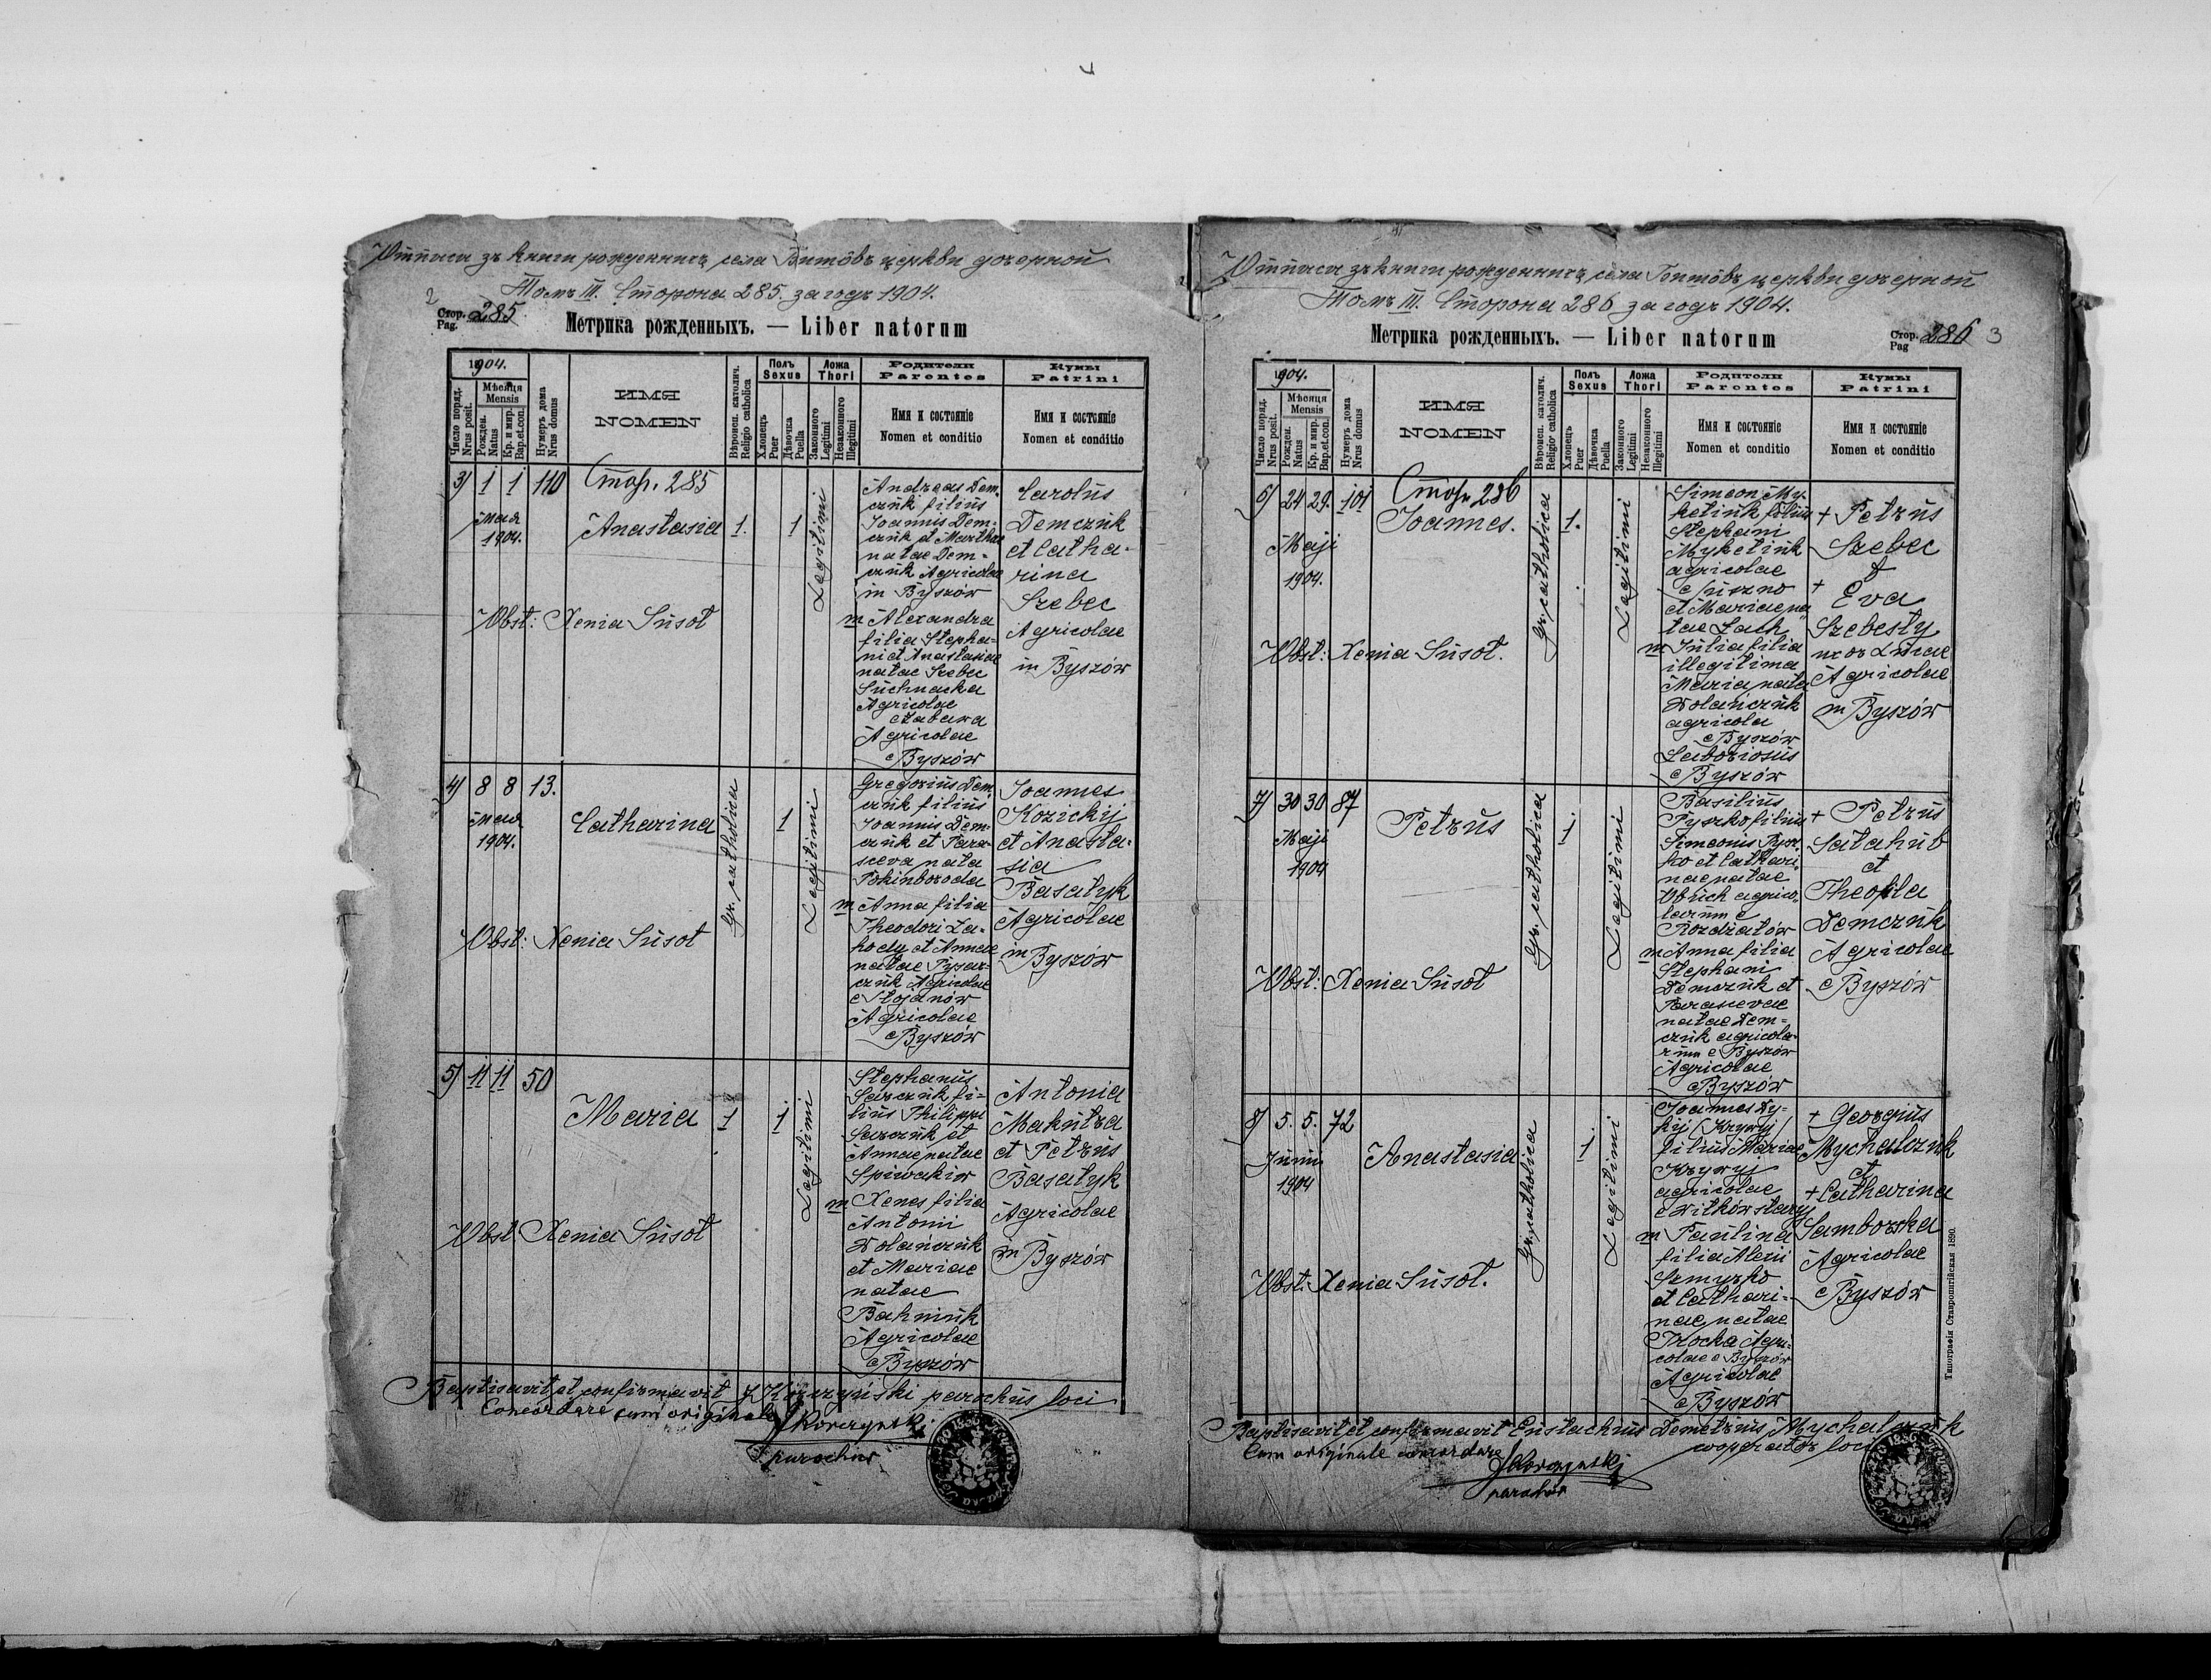 Отписъ зъ книги рожденныхъ села Битôвъ церкви дочерной
Томъ III. Сторона 285. за годъ 1904.
2
Стор. Pag. 285
Метрика рожденныхъ. — Liber natorum
1904.
Число поряд. Nrus posit.
Мѣсяця Mensis
Рожден. Natus
Кр. и мѵр. Bap.et.con.
Нумеръ дома Nrus domus
ИМЯ
NOMEN
Вѣроисп. католич. Religio catholica
Полъ Sexus
Хлопецъ Puer
Дѣвочка Puella
Ложа Thori
Законного Legitimi
Незаконного Illegitimi
Родители
Parentes
Имя и состоянiе
Nomen et conditio
Кумы
Patrini
Имя и состоянiе
Nomen et conditio
3) 1 1 110
Стор. 285
Мая
1904.
Anastasia 1. 1
Legitimi
Andreas Dem-
czuk filius
Joannis Dem-
czuk et Marthae
natae Dem-
czuk Agricolae
in Byszów
m Alexandra
filia Stepha-
ni et Anastasiae
natae Szebec
Suchnacka
Agricolae
Zabawa
Agricolae
e Byszów
Carolus
Demczuk
et Catha-
rina
Szebec
Agricolae
in Byszów
Obst: Xenia Susol
4) 8 8 13.
Мая
1904.
Catharina
Gr. catholica
1
Legitimi
Gregorius Dem-
czuk filius
Joannis Dem-
czuk et Para-
sceva nata
m Anna filia
Theodori Za-
hody et Annae
natae Pysar-
czuk Agricolae
e Stojanów
Agricolae
e Byszów
Joannes
Kozickij
et Anasta-
sia
Basatyk
Agricolae
in Byszów
Obst: Xenia Susol
5) 11 11 50
Maria 1 1
Legitimi
Stephanus
Sawczuk fi-
lius Philippi
Sawczuk et
Annae natae
Spiwakiw
m Xenes filia
Antonii
Wolańczuk
et Mariae
natae
Bahniuk
Agricolae
e Byszów
Antonia
Makutra
et Petrus
Basatyk
Agricolae
in Byszów
Obst Xenia Susol
Baptisavit et confirmavit J Korczyński parochus loci
Concordare cum originale J Korczynski
parochus
Отписъ зъ книги рожденныхъ села Битôвъ церкви дочерной
Томъ III. Сторона 286 за годъ 1904.
Метрика рожденныхъ. — Liber natorum
Стор. Pag 286 3
1904.
Число поряд. Nrus posit.
Мѣсяця Mensis
Рожден. Natus
Кр. и мѵр. Bap.et.con.
Нумеръ дома Nrus domus
ИМЯ
NOMEN
Вѣроисп. католич. Religio catholica
Полъ Sexus
Хлопецъ Puer
Дѣвочка Puella
Ложа Thori
Законного Legitimi
Незаконного Illegitimi
Родители
Parentes
Имя и состоянiе
Nomen et conditio
Кумы
Patrini
Имя и состоянiе
Nomen et conditio
6) 24 29. 101
Стор 286
Joannes.
Maji
1904.
Gr. catholica
1.
Legitimi
Simeon My-
ketiuk filius
Stephani
Myketiuk
agricolae
e Suszno
et Mariae na
tae Lach
m Julia filia
illegitima
Maria nata
Wolańczuk
agricola
e Byszów
Laboriosus
e Byszów
+ Petrus
Szebec
&
+ Eva
Szebesty
uxor Lucae
Agricolae
in Byszów
Obst: Xenia Susol.
7) 30 30 87
Maji
1904
Petrus
Gr. catholica
1
Legitimi
Basilius
Pyszko filius
Simeonis Pysz-
ko et Cathari
nae natae
Obuch agrico-
larum e
Rozdżałów
m Anna filia
Stephani
Demczuk et
Parascevae
natae Dem-
czuk agricola-
rum e Byszów
Agricolae
e Byszów
+ Petrus
Satahub
et
Theofila
Demczuk
Agricolae
e Byszów
Obst: Xenia Susol
8) 5. 5. 72
Junii
1904
Anastasia
Gr. catholica
1
Legitimi
Joannes Dy-
kij (Krywyj)
filius Mariae
Krywyj
agricolae
e Witków stary
m Paulina
filia Alexii
Szmyrko
et Cathari-
nae natae
Trocka Agri-
colae e Byszów
Agricolae
e Byszów
+ Georgius
Mychalczuk
et
+ Catharina
Samborska
Agricolae
e Byszów
Obst: Xenia Susol.
Типографія Ставропигійская 1890.
Baptisavit et confirmavit Eustachius Demetrius Mychalczuk
cooperator loci
Cum originale concordare J Korczynski
parochus